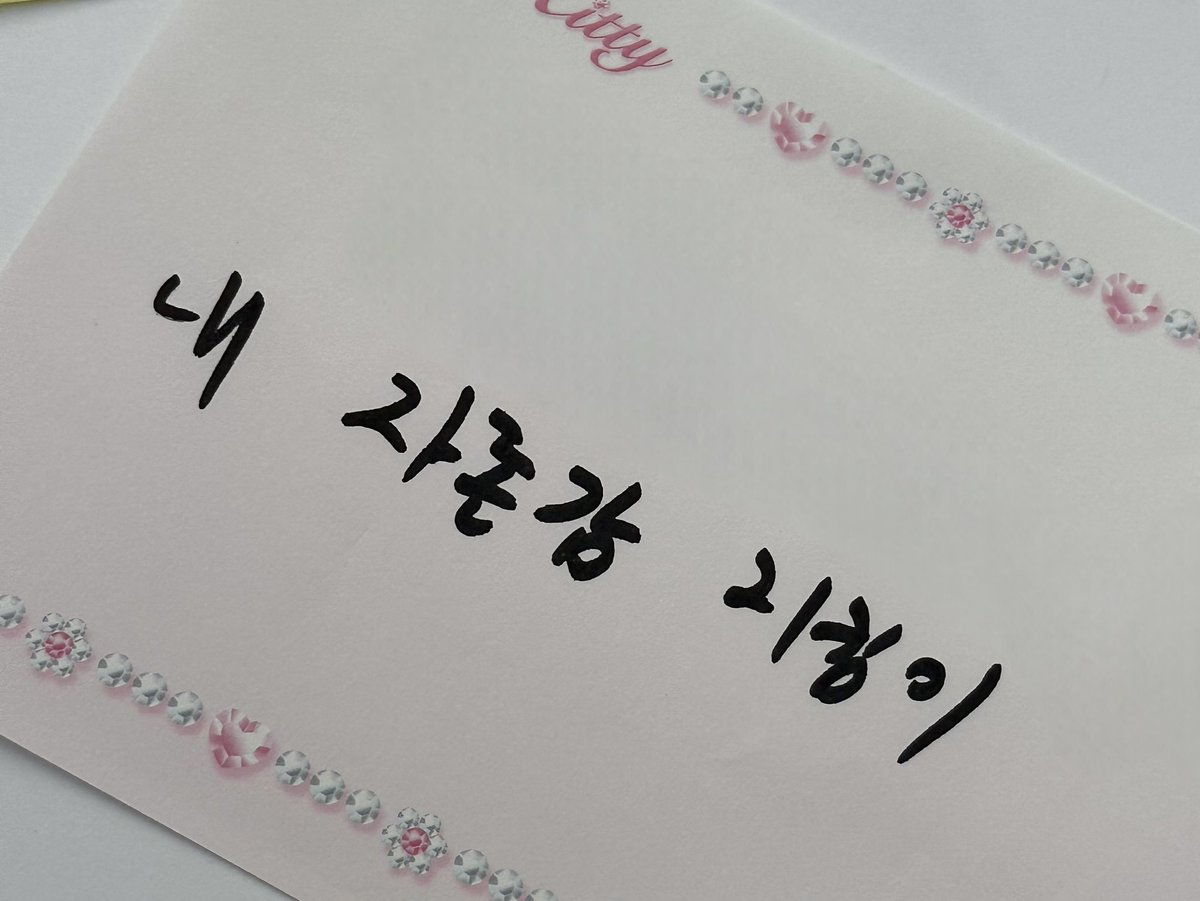 Kitty
내 자존감 지킴이